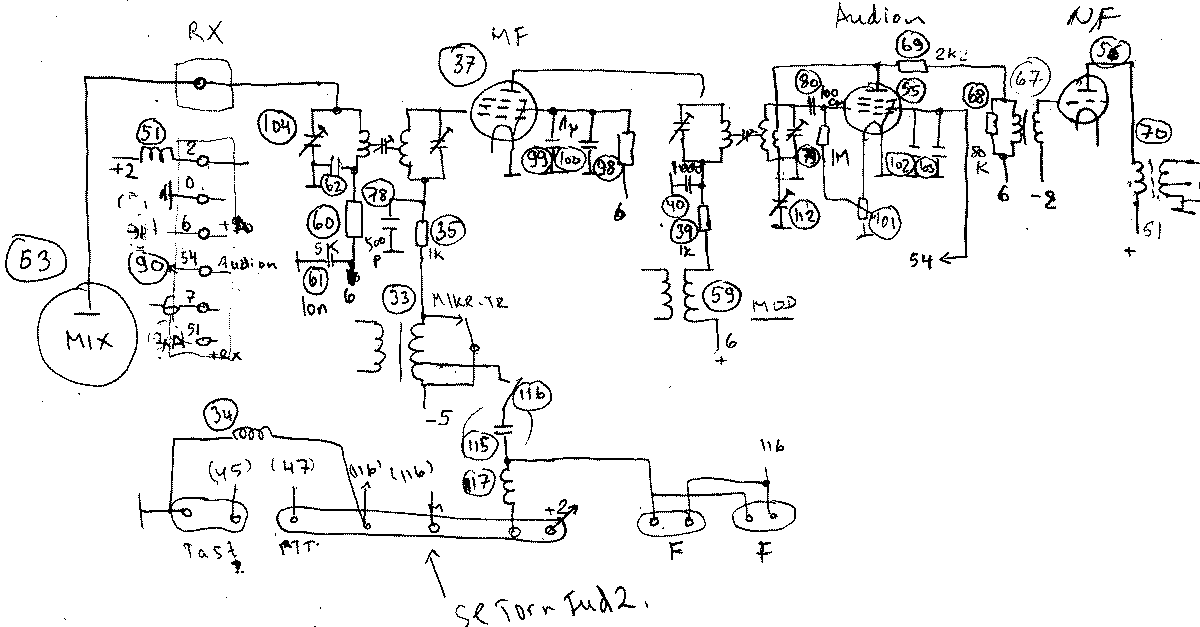 RX
MF
Audion
NF
37
69
2K2
56
67
104
51
2
+2
0
6
54
Audion
7
51
+RX
90
53
MIX
62
60
5K
61
10n
6
78
500
P
35
1K
33
MIKR-TR
-5
99
1µ
100
98
6
1000
40
39
1K
59
MOD
6
+
80
100
55
1M
112
101
102
54
68
80
K
6
-2
70
51
+
34
(45)
(47)
(116)
(116)
115
116
117
+2
116
Tast
MTT.
F
F
Se Torn Fud2.